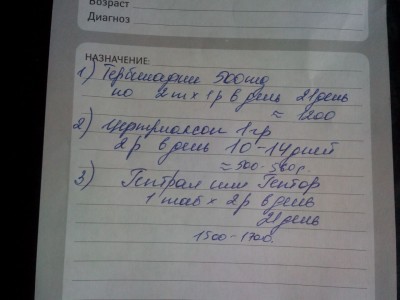 Возраст
Диагноз
НАЗНАЧЕНИЕ:
1) Тербинафин 500mg
по 2т х 1р в день 21день
≈ 1200
2) Цефтриаксон 1гр
2р в день 10-14дней
≈500-560р.
3) Гептрал или Гептор
1 таб х 2р в день
21день
1500-1700.